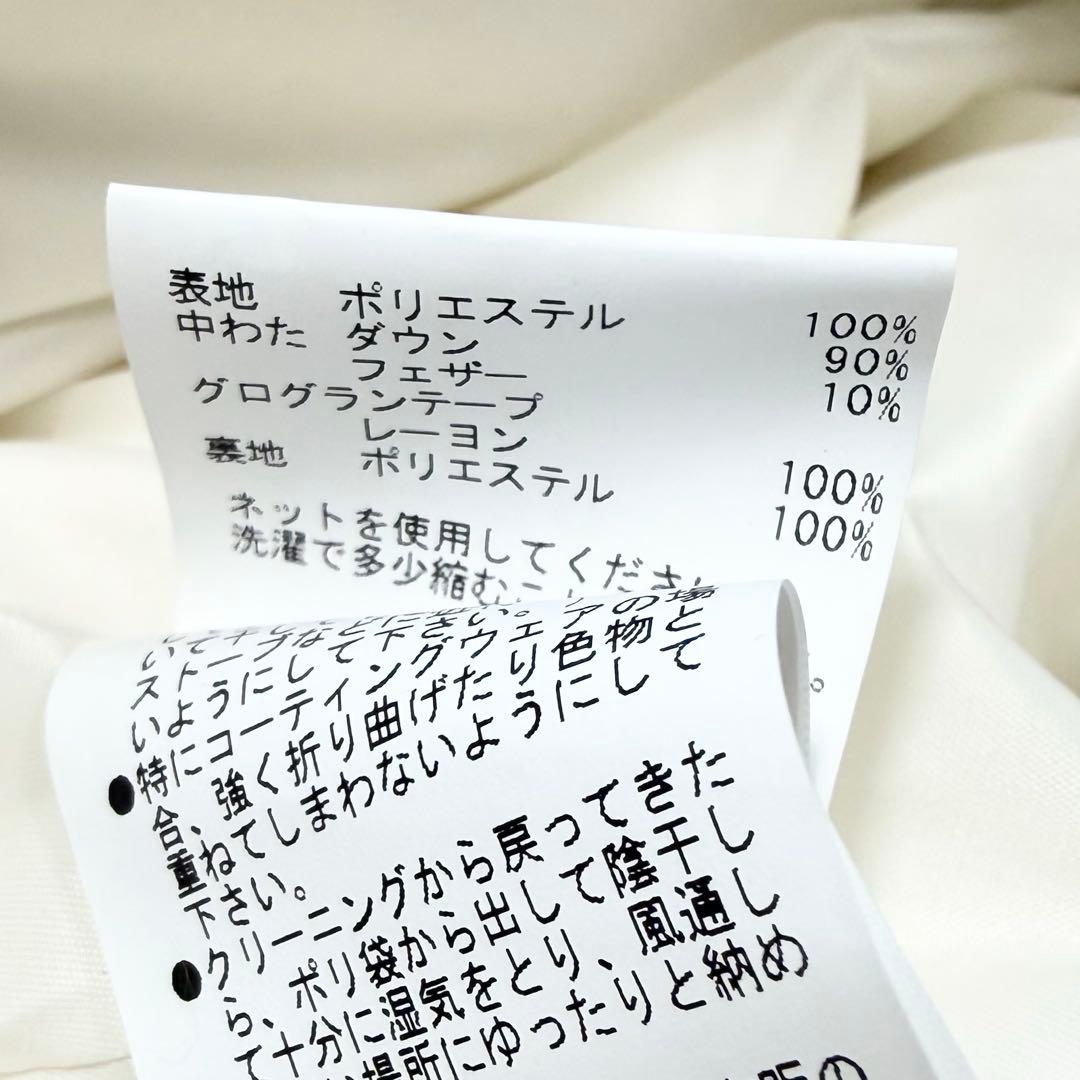 表地 ポリエステル 100%
中わた ダウン 90%
フェザー 10%
グログランテープ
レーヨン 100%
裏地 ポリエステル 100%
ネットを使用してくださ
洗濯で多少縮む
。
特にコーティング
合、強く折り曲げたり色物
重ねてしまわないようにして
下さい。
●クリーニングから戻ってきた
ら、ポリ袋から出して陰干し
て十分に湿気をとり、風通し
場所にゆったりと納め